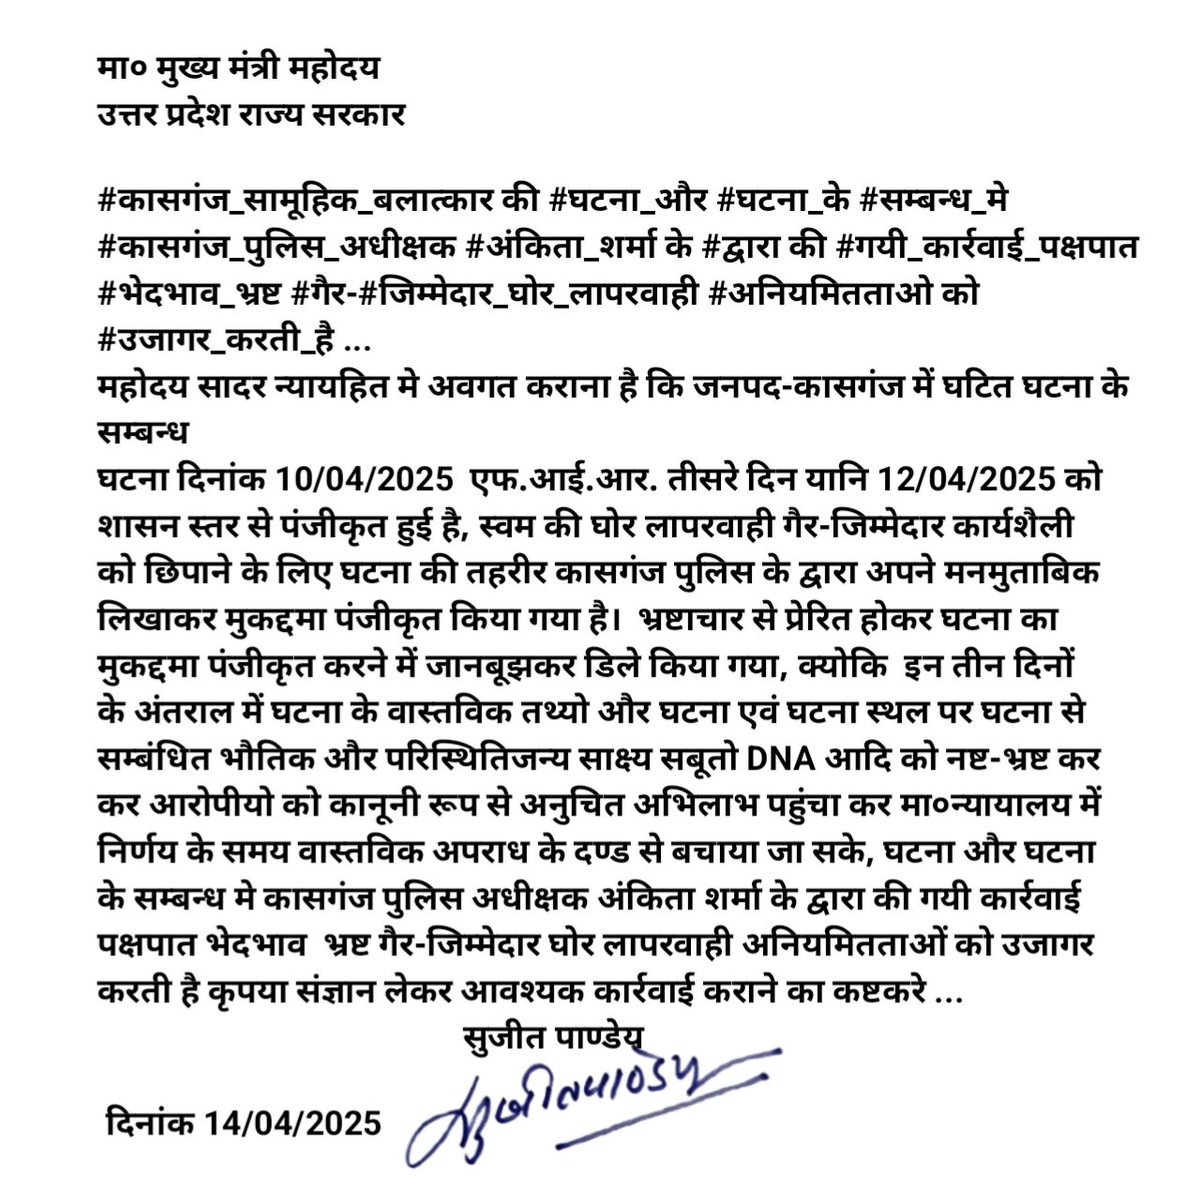 मा० मुख्य मंत्री महोदय
उत्तर प्रदेश राज्य सरकार
#कासगंज_सामूहिक_बलात्कार की #घटना_और #घटना_के #सम्बन्ध_मे
#कासगंज_पुलिस_अधीक्षक #अंकिता_शर्मा के #द्वारा की #गयी_कार्रवाई_पक्षपात
#भेदभाव_भ्रष्ट #गैर-#जिम्मेदार_घोर_लापरवाही #अनियमितताओ को
#उजागर_करती_है ...
महोदय सादर न्यायहित मे अवगत कराना है कि जनपद-कासगंज में घटित घटना के
सम्बन्ध
घटना दिनांक 10/04/2025 एफ.आई.आर. तीसरे दिन यानि 12/04/2025 को
शासन स्तर से पंजीकृत हुई है, स्वम की घोर लापरवाही गैर-जिम्मेदार कार्यशैली
को छिपाने के लिए घटना की तहरीर कासगंज पुलिस के द्वारा अपने मनमुताबिक
लिखाकर मुकद्दमा पंजीकृत किया गया है। भ्रष्टाचार से प्रेरित होकर घटना का
मुकद्दमा पंजीकृत करने में जानबूझकर डिले किया गया, क्योकि इन तीन दिनों
के अंतराल में घटना के वास्तविक तथ्यो और घटना एवं घटना स्थल पर घटना से
सम्बंधित भौतिक और परिस्थितिजन्य साक्ष्य सबूतो DNA आदि को नष्ट-भ्रष्ट कर
कर आरोपीयो को कानूनी रूप से अनुचित अभिलाभ पहुंचा कर मा०न्यायालय में
निर्णय के समय वास्तविक अपराध के दण्ड से बचाया जा सके, घटना और घटना
के सम्बन्ध मे कासगंज पुलिस अधीक्षक अंकिता शर्मा के द्वारा की गयी कार्रवाई
पक्षपात भेदभाव भ्रष्ट गैर-जिम्मेदार घोर लापरवाही अनियमितताओं को उजागर
करती है कृपया संज्ञान लेकर आवश्यक कार्रवाई कराने का कष्टकरे ...
सुजीत पाण्डेय
सुजीत पाण्डेय
दिनांक 14/04/2025